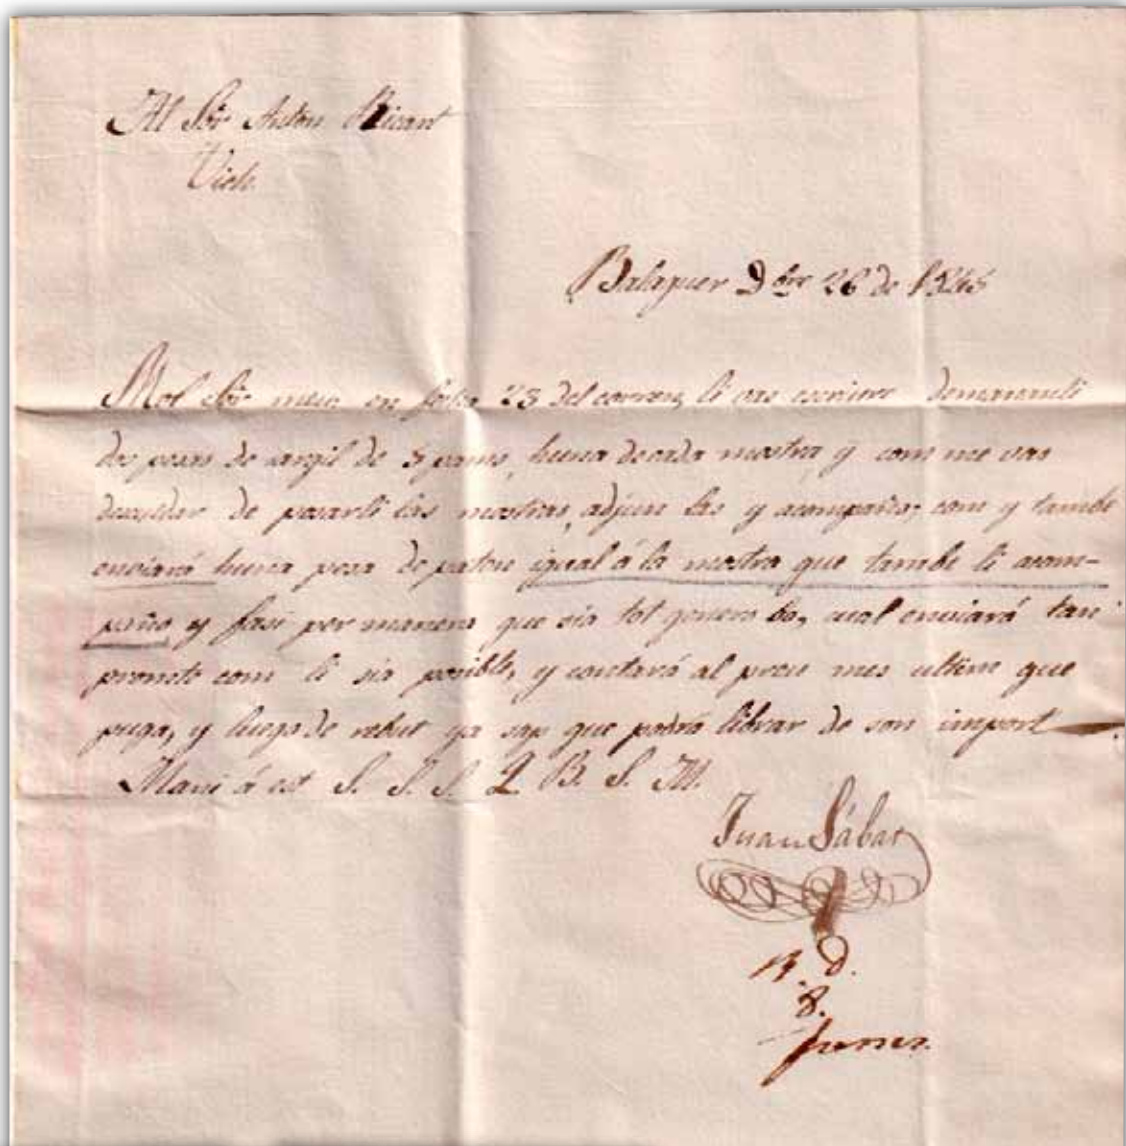 Al Sor Anton Ricart
Vich.
Balaguer Dbre 26 de 1845
Mol Sor meu en fecha 23 del corren, li vas escriurer demananli
dos pesas de de 5 pams, huna de cada mostra y com me vas
de posarli las mostras, adjun las y acompaño, com y tambe
enviará huna pesa de igual á la mostra que tambe li acom-
paño y fasi per manera que sia tot genero bo, cual enviará tan
promte com li sia posible, y contará al preu mes ultim que
puga, y luego de rebut ya sap que podrá librar de son import
Mani á est S. S. S. Q. B. S. M.
Juan Sábat
d.
8.